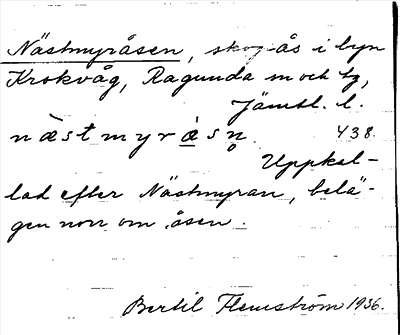 Nästmyråsen, skog-ås i byn
Krokvåg, Ragunda sn och tg,
Jämtl. l.
næ̀stmyrásn̥ 438.
Uppkal-
lad efter Nästmyran, belä-
gen norr om åsen.
Bertil Flemström 1936.